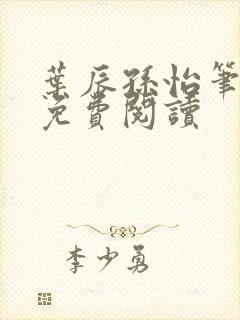 葉辰孫怡筆
免費閱讀
李少勇